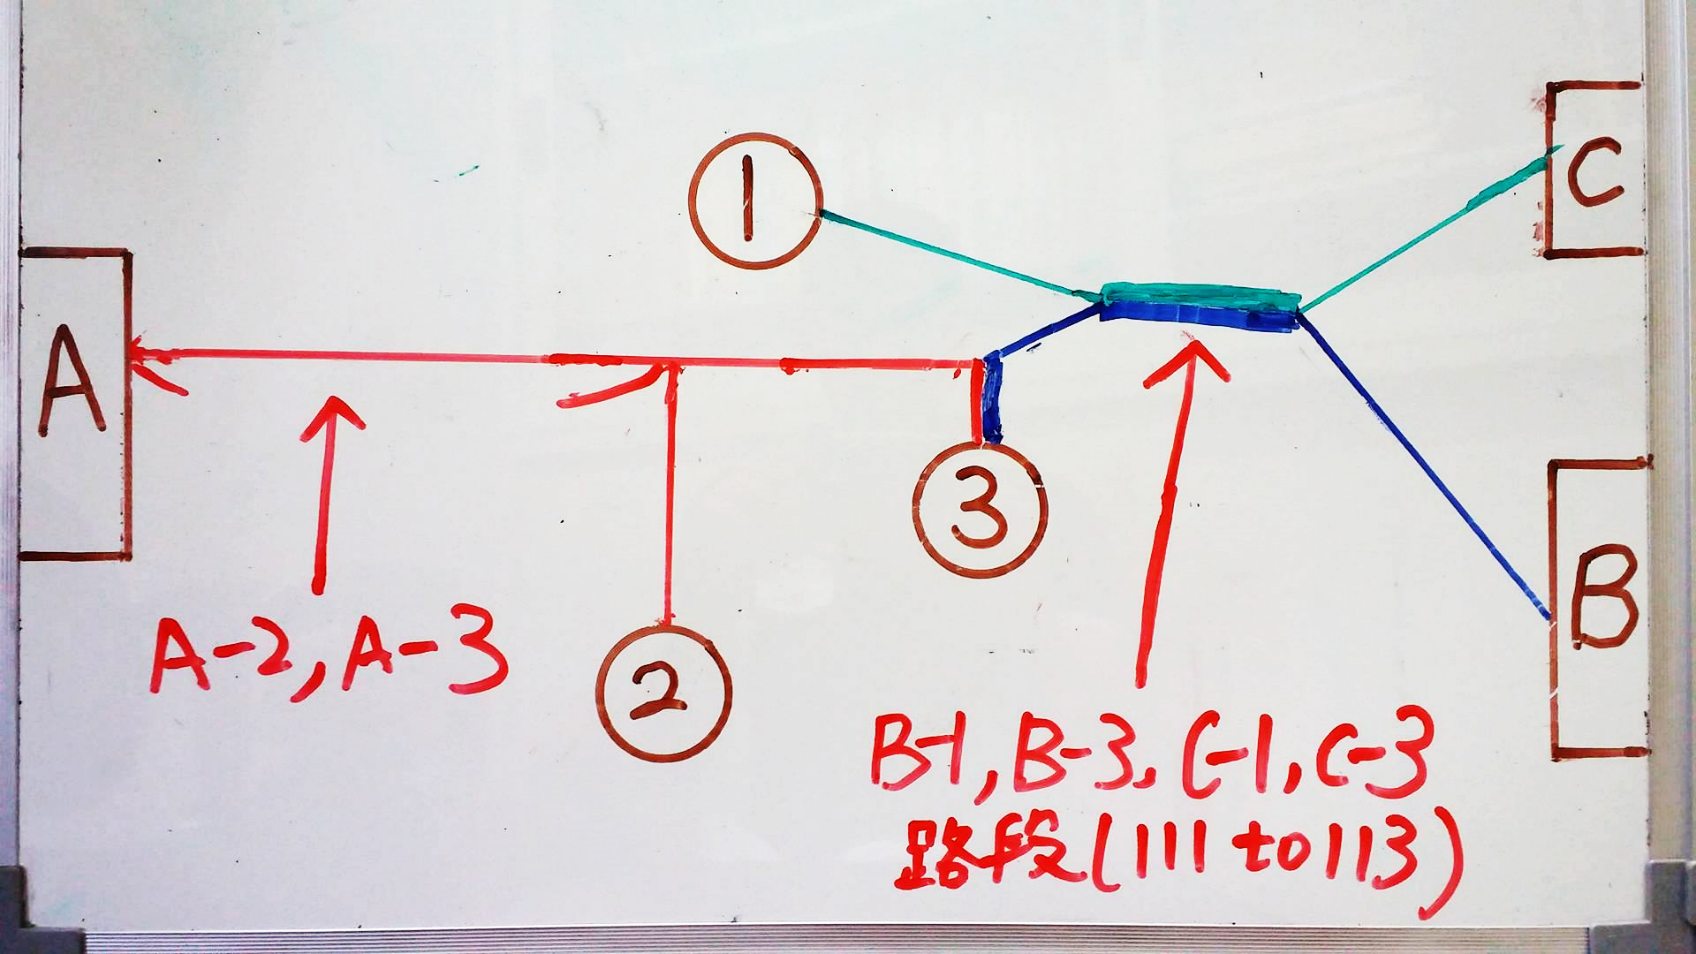 1
C
A
3
B
A-2, A-3
2
B-1, B-3, C-1, C-3
路段(111 to 113)